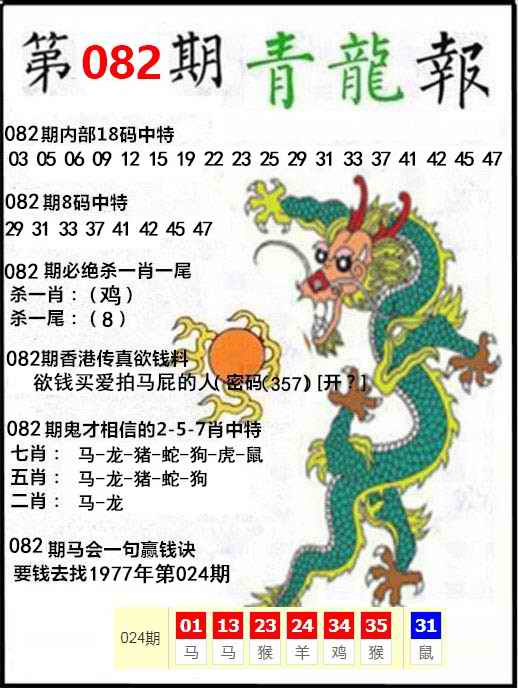 第082期青龍報
082期内部18码中特
03 05 06 09 12 15 19 22 23 25 29 31 33 37 41 42 45 47
082期8码中特
29 31 33 37 41 42 45 47
082期必绝杀一肖一尾
杀一肖：（鸡）
杀一尾：（8）
082期香港传真欲钱料
欲钱买爱拍马屁的人(密码(357)[开？]
082期鬼才相信的2-5-7肖中特
七肖： 马-龙-猪-蛇-狗-虎-鼠
五肖： 马-龙-猪-蛇-狗
二肖： 马-龙
082期马会一句赢钱诀
要钱去找1977年第024期
024期 01 13 23 24 34 35 31
马 马 猴 羊 鸡 猴 鼠